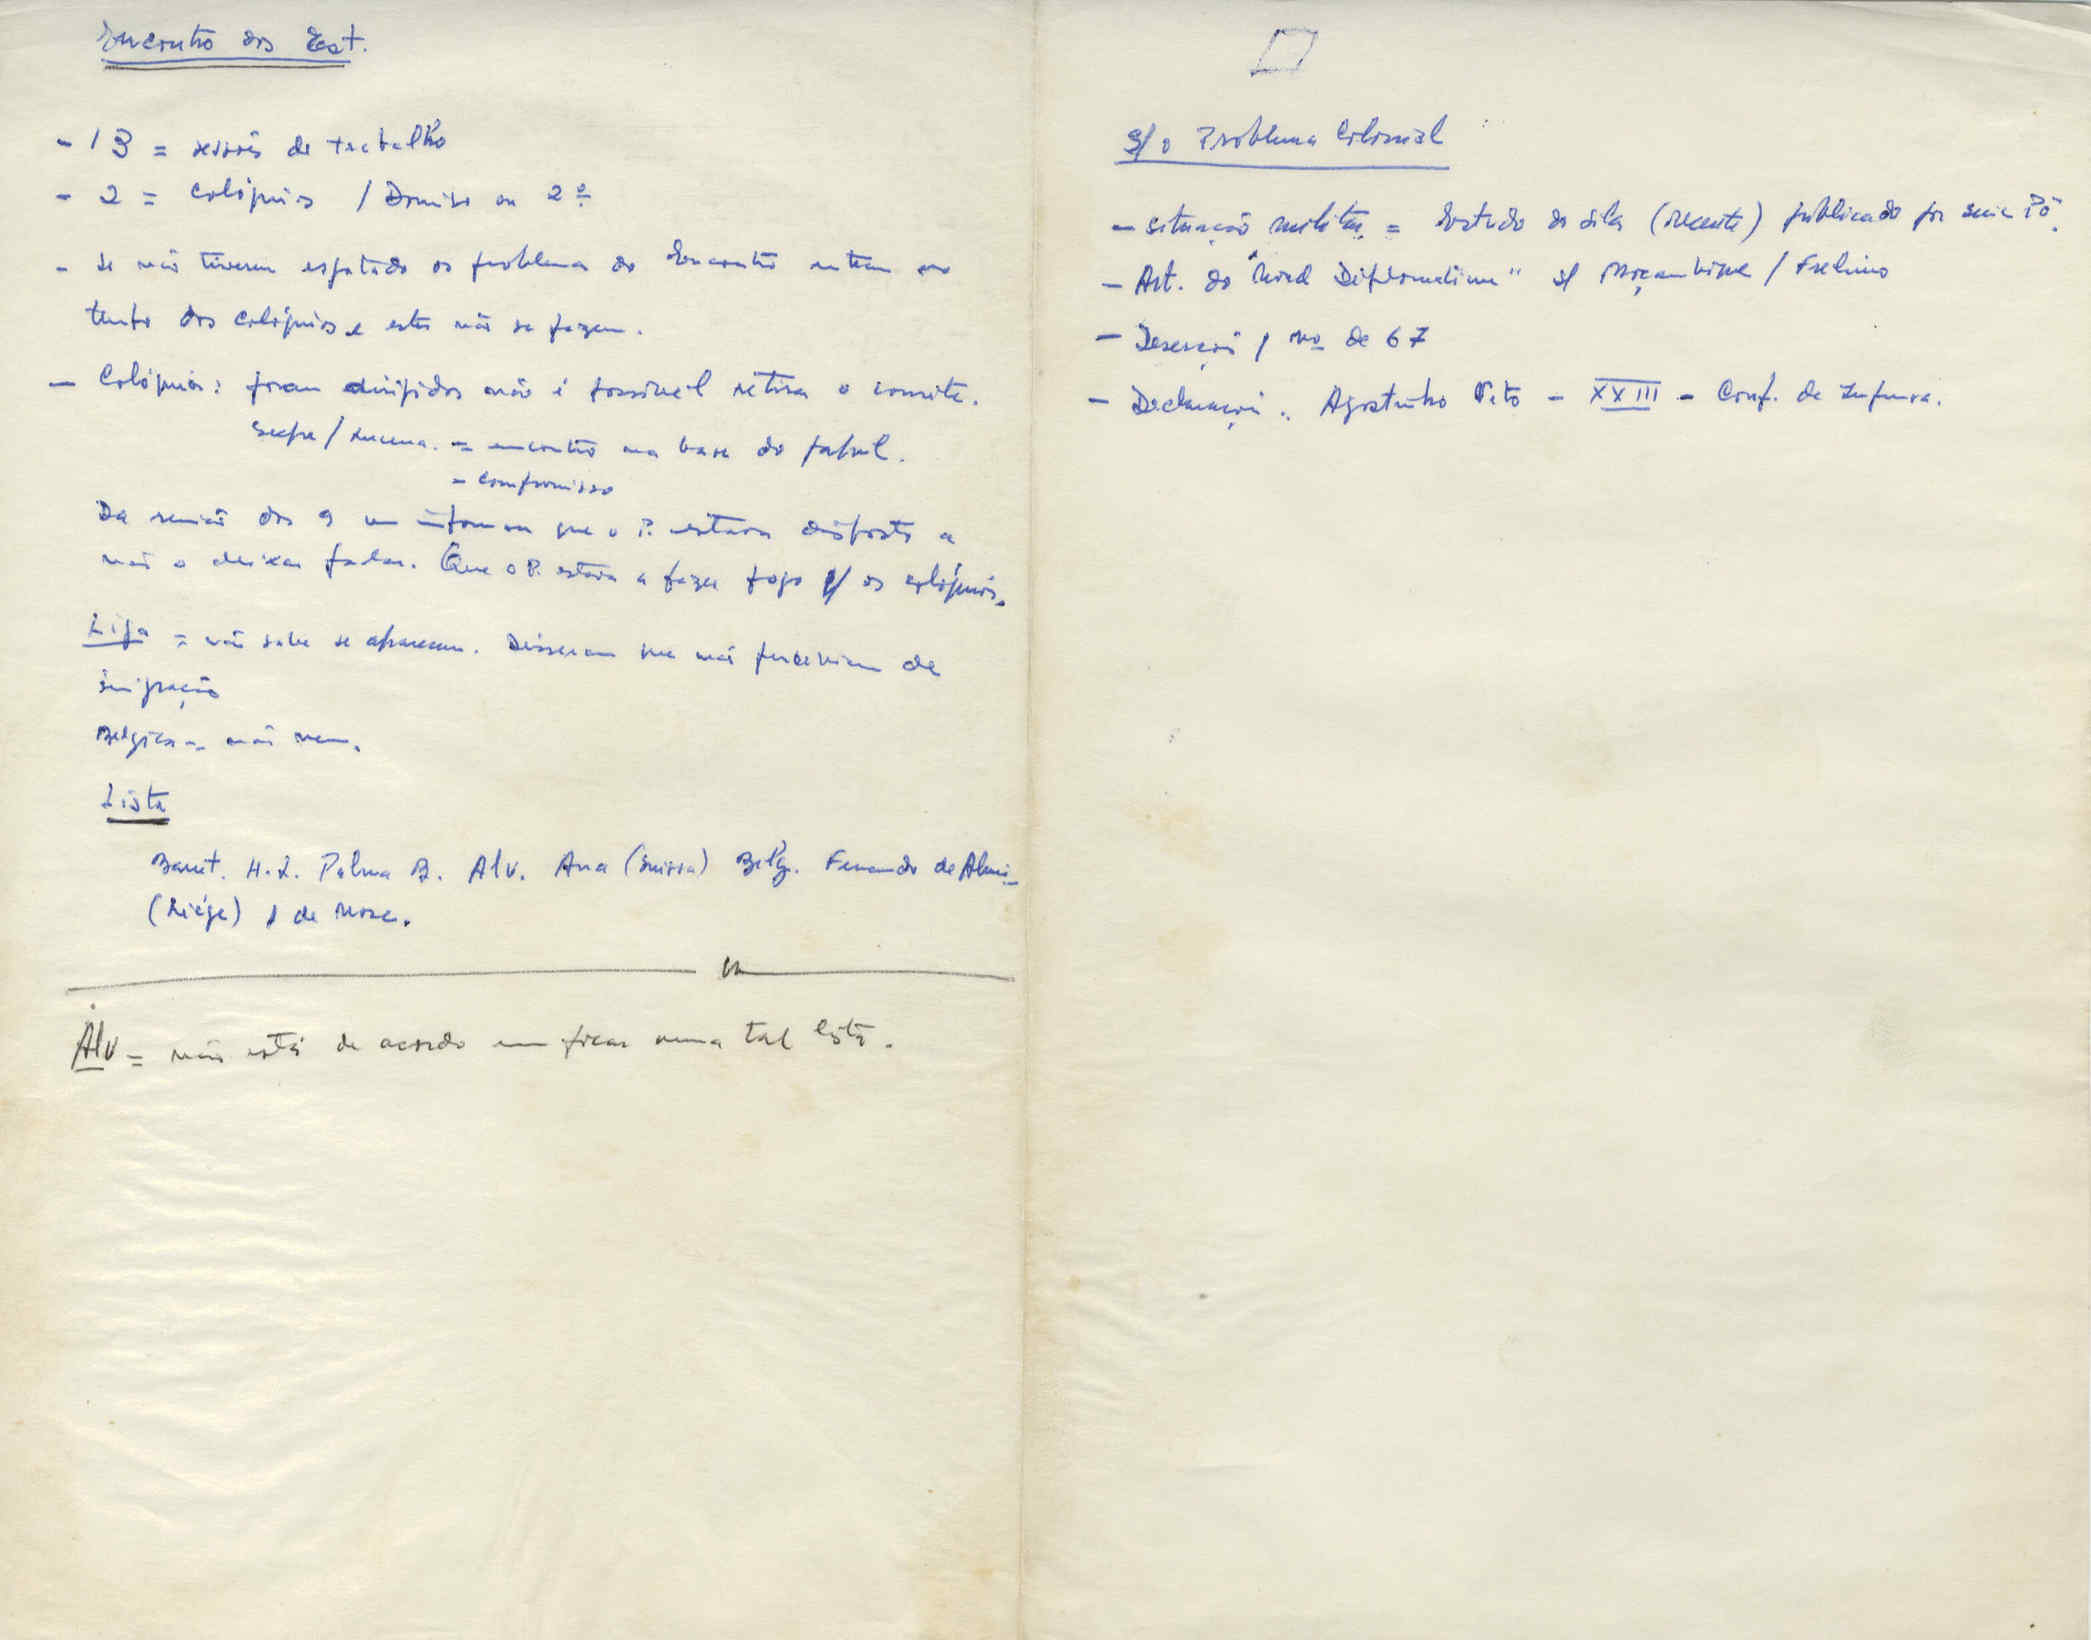 Encontro dos Est.
- 13 = sessões de trabalho
- 2 = Colóquios / Domingo ou 2ª
- Se não tiverem esgotado os problemas do Encontro entram no
tempo dos colóquios e estes não se fazem.
- Colóquios: foram dirigidos não é possível retirar o convite.
/ Lucena. = encontro na base do papel.
= compromisso
Da reunião dos 9 um informou que o P. estava disposto a
não o deixar falar. Que o P. estava a fazer fogo p/ os colóquios.
Liga = não sabe se aparecem. Disseram que não percebiam de
imigração
Belgica = não vem.
Lista
H. L. Palma B. Alv. Ana (Suissa) Belg. Fernando de
(Liége) 1 de
Alv = não está de acordo em ficar numa tal lista.
S/ o Problema Colonial
- Situação militar = Estudo do Sila (recente) publicado por
- Art. do "Mond Diplomatique" s/ Moçambique / Frelimo
- Deserções / nº de 67
- Declaração: Agostinho Neto - XXIII - Conf. de